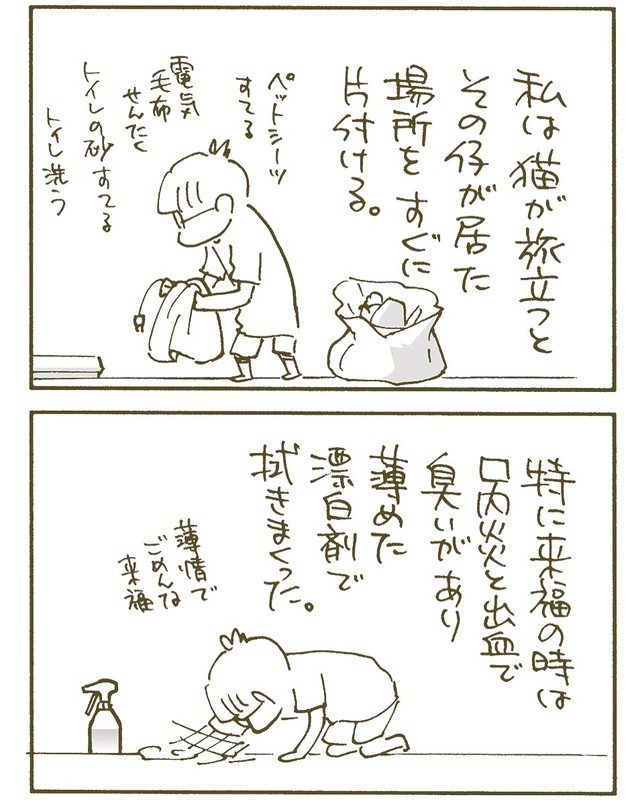 私は猫が旅立つと
その仔が居た
場所をすぐに
片付ける。
ペットシーツ
すてる
電気
毛布
せんたく
トイレの砂すてる
トイレ洗う
特に来福の時は
口内炎と出血で
臭いがあり
薄めた
漂白剤で
拭きまくった。
薄情で
ごめんな
来福